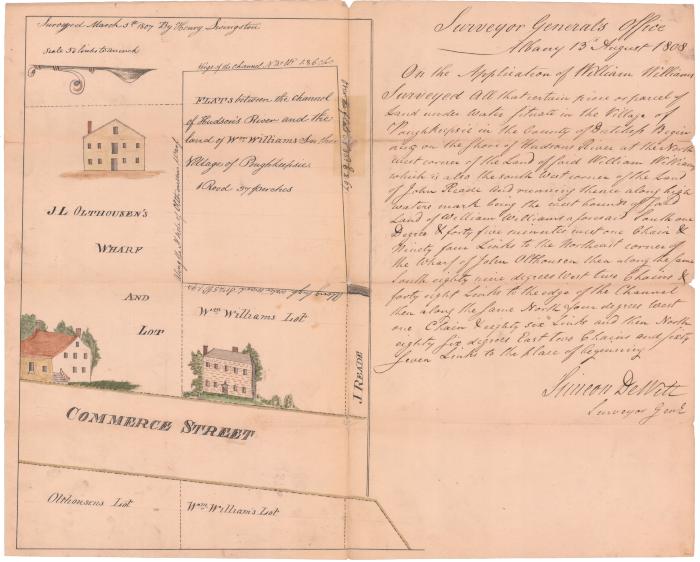 Surveyed March 5th 1807 By Henry Livingston
Scale 50 links to an inch
Edge of the Channel N 4 W 1.86
FLATS between the channel
of Hudsons River and the
land of Wm Williams In the
Village of Poughkeepsie
1 Rood 37 perches
Along the N side of Olthousens Wharf
J L OLTHOUSEN'S
WHARF
AND
LOT
Along high water mark
Wm Williams Lot
J READE
COMMERCE STREET
Olthousens Lot
Wm William's Lot
Surveyor Generals Office
Albany 13th August 1808
On the Application of William Williams
Surveyed All that certain piece or parcel of
Land under Water situate in the Village of
Poughkeepsie in the County of Dutchess Begin
ning on the Shore of Hudsons River at the North
west corner of the Land of said William Williams
which is also the south West corner of the Land
of John Reade And running thence along high
water mark being the west bounds of said
Land of William Williams aforesaid South one
Degree & forty five minutes west one Chain &
Ninety four Links to the Northeast corner of
the Wharf of John Olthousen then along the same
South eighty nine degrees West two Chains &
forty eight Links to the edge of the Channel
then along the same North four degrees West
one Chain & eighty six Links and then North
eighty six degrees East two Chains and sixty
seven Links to the place of beginning
Simeon DeWitt
Surveyor Genl